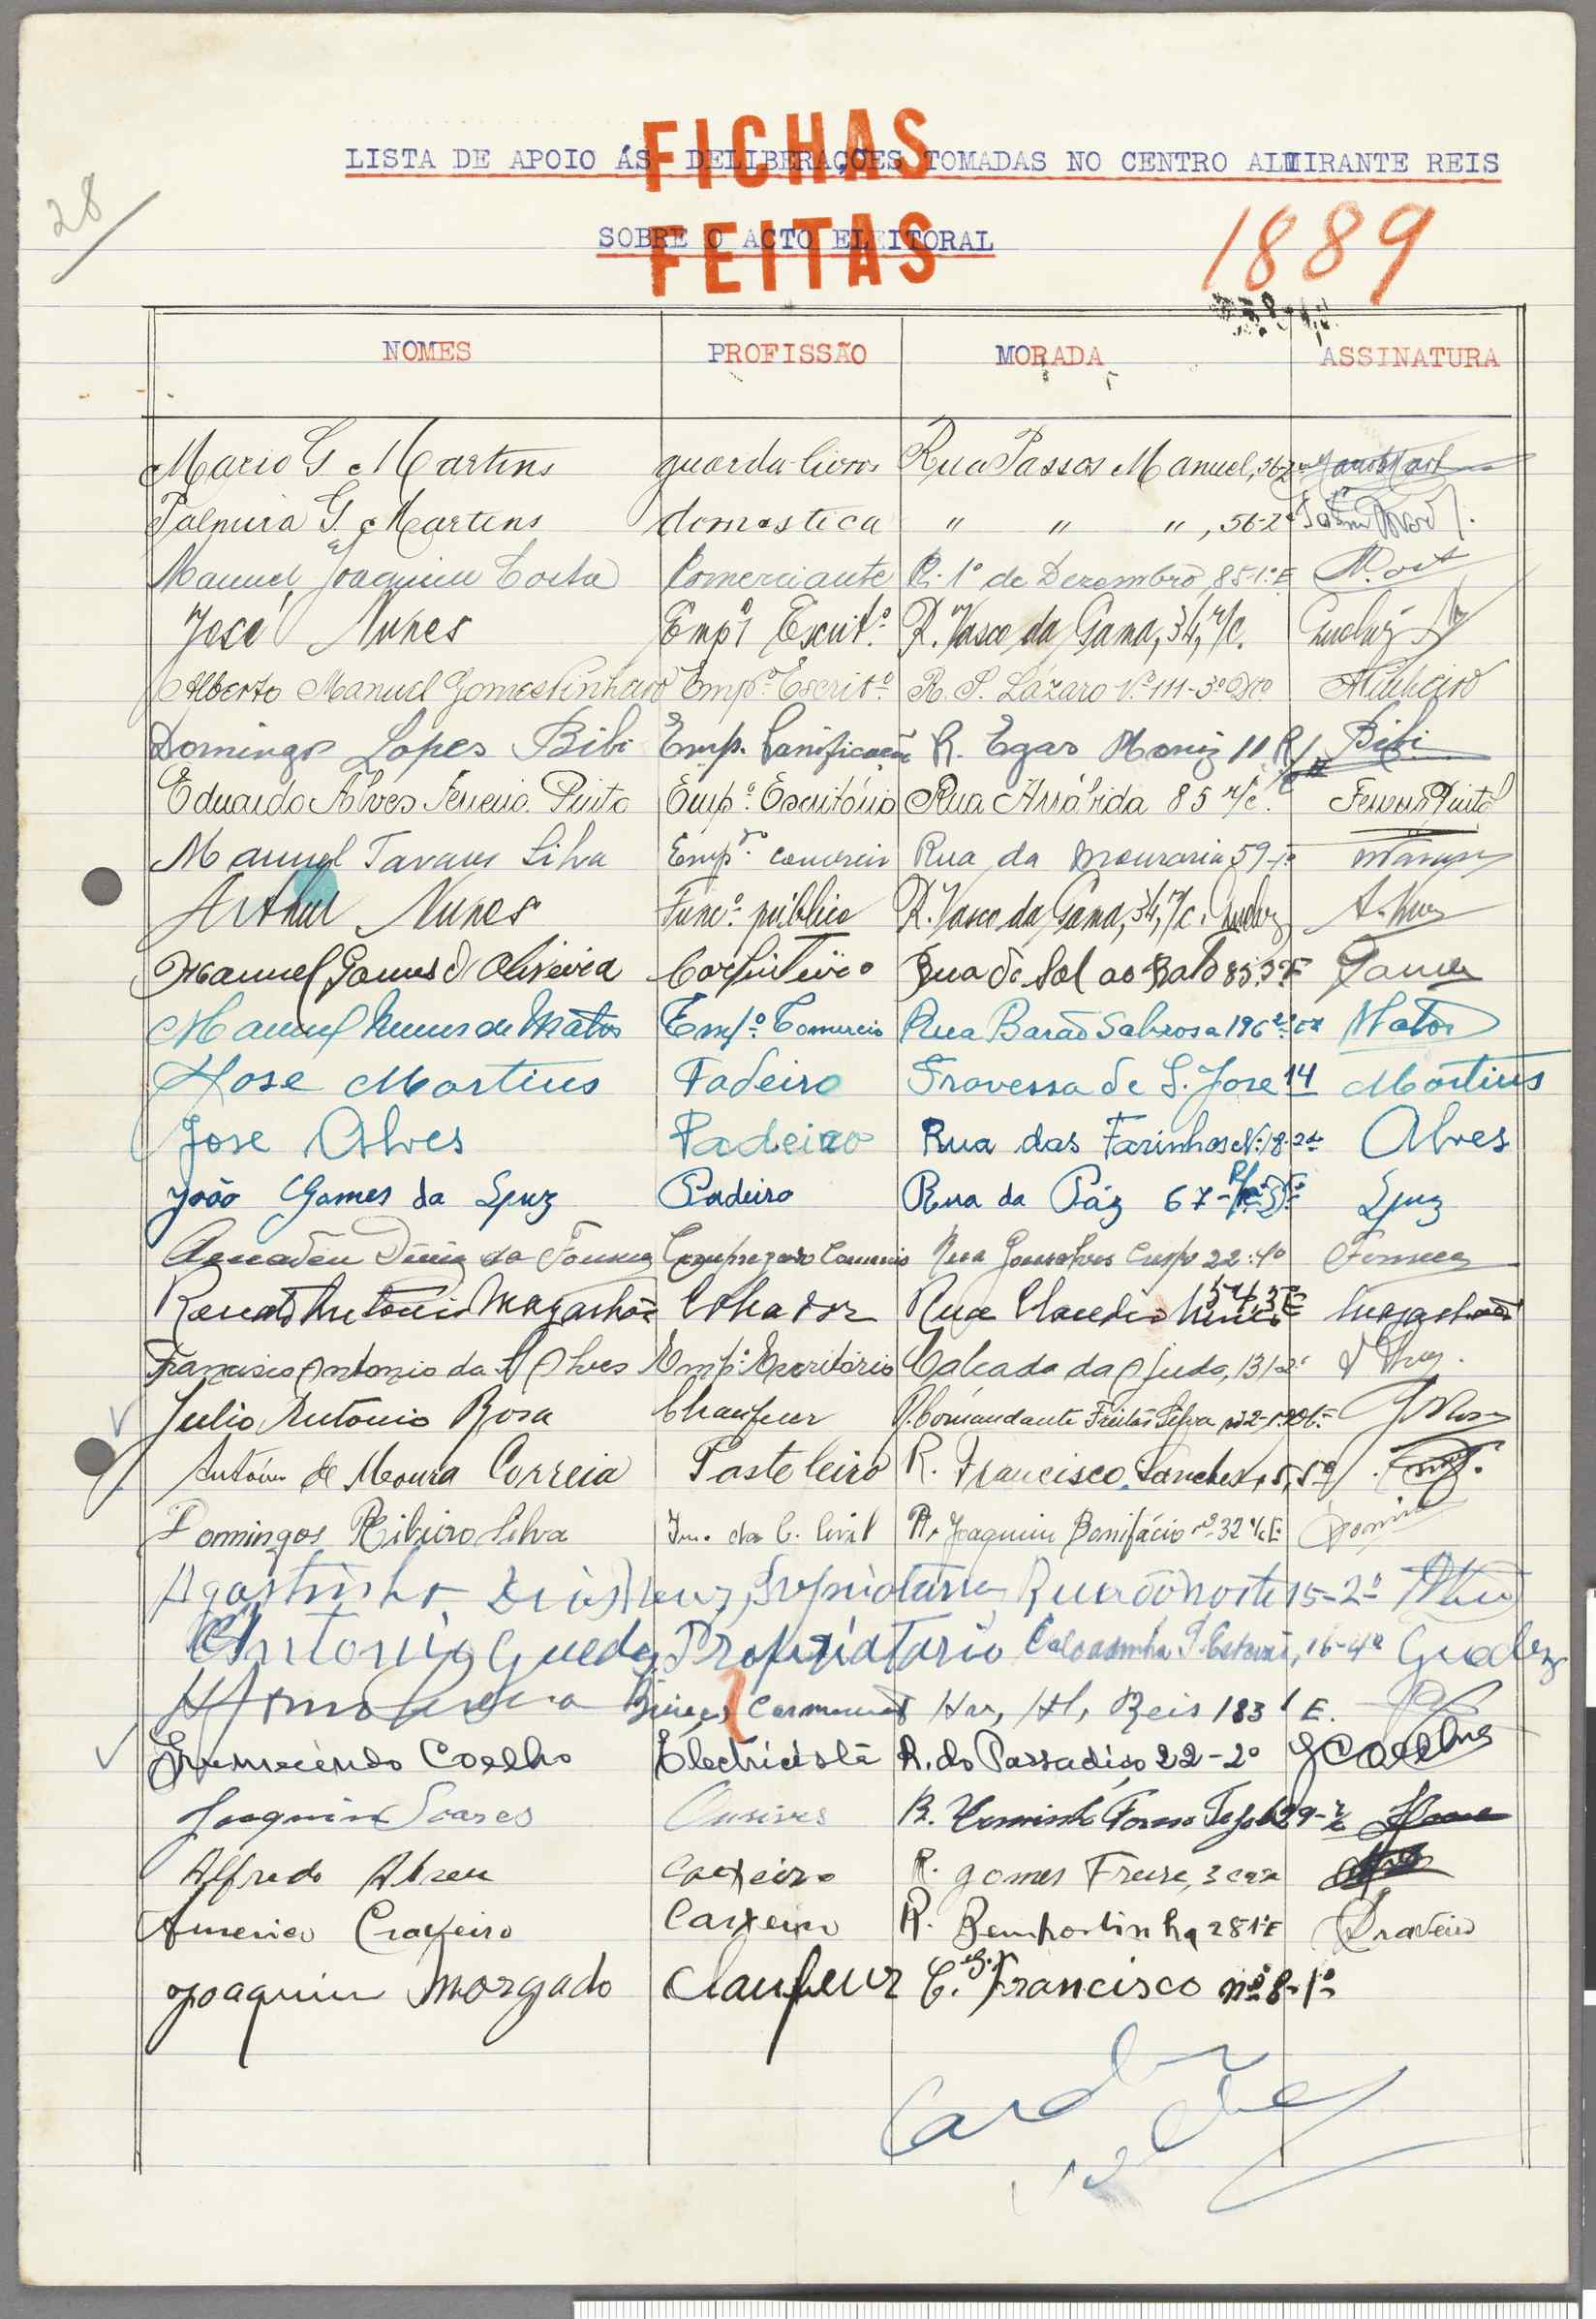 FICHAS
LISTA DE APOIO ÁS DELIBERAÇÕES TOMADAS NO CENTRO ALMIRANTE REIS
28
FEITAS
SOBRE O ACTO ELEITORAL
1889
NOMES PROFISSÃO MORADA ASSINATURA
Mario G. Martins guarda-livros Rua Passos Manuel, 56-2º
Palmira G. Martins domestica " " ", 56-2º
Manuel Joaquim Costa Comerciante R. 1º de Dezembro, 85-1º E
José Nunes Empº Escritº R. Vasco da Gama, 34, r/c.
Alberto Manuel Gomes Pinheiro Empº Escritº R. S. Lázaro Nº 111-3º Dto
Domingos Lopes Bibi Emp. Panificação R. Egas Moniz 11 R/ Bibi
Eduardo Alves Ferreira Pinto Empº Escritório Rua Arrábida 85 r/c. Ferreira Pinto
Manuel Tavares Silva Empº comercio Rua da Mouraria 59
Arthur Nunes Funcº público R. Vasco da Gama, 34, r/c. A. Nunes
Manuel Gomes d'Oliveira Carpinteiro Rua do Sol ao Rato 85 Gomes
Manuel Nunes de Matos Empº Comercio Rua Barão Sabrosa 196 Matos
Jose Martins Padeiro Travessa de S. Jose 14 Martins
Jose Alves Padeiro Rua das Farinhas Nº 18 Alves
João Gomes da Luz Padeiro Rua da Páz 67 Luz
Amadeu Diniz da Fonseca Empregado Comercio Rua Gonsalves Crespo 22-4º Fonseca
Renato Antonio Magalhães Rua Claudio Nunes 54 3º E Magalhães
Francisco Antonio da S. Alves Empº Escritório Calçada da Ajuda, 131-2º
Julio António Rosa Chaufeur R. Comandante Freitas Silva J. Rosa
António de Moura Correia Pasteleiro R. Francisco Sanches, 5º
Domingos Ribeiro Silva C. Civil R. Joaquim Bonifácio nº 32 r/c E.
Agostinho Dias Proprietario Rua do Norte 15-2º
Antonio Guedes Proprietario 16-4º Guedes
Av. Al. Reis 183 1º E.
Coelho Electricista R. do Passadiço 22-2º Coelho
Joaquim Soares Ourives
Alfredo Abreu Caixeiro R. Gomes Freire, 3
Americo Craveiro Caixeiro R. Bempostinha 28 1º E Craveiro
Joaquim Morgado Chaufeur C. S. Francisco nº 8-1º